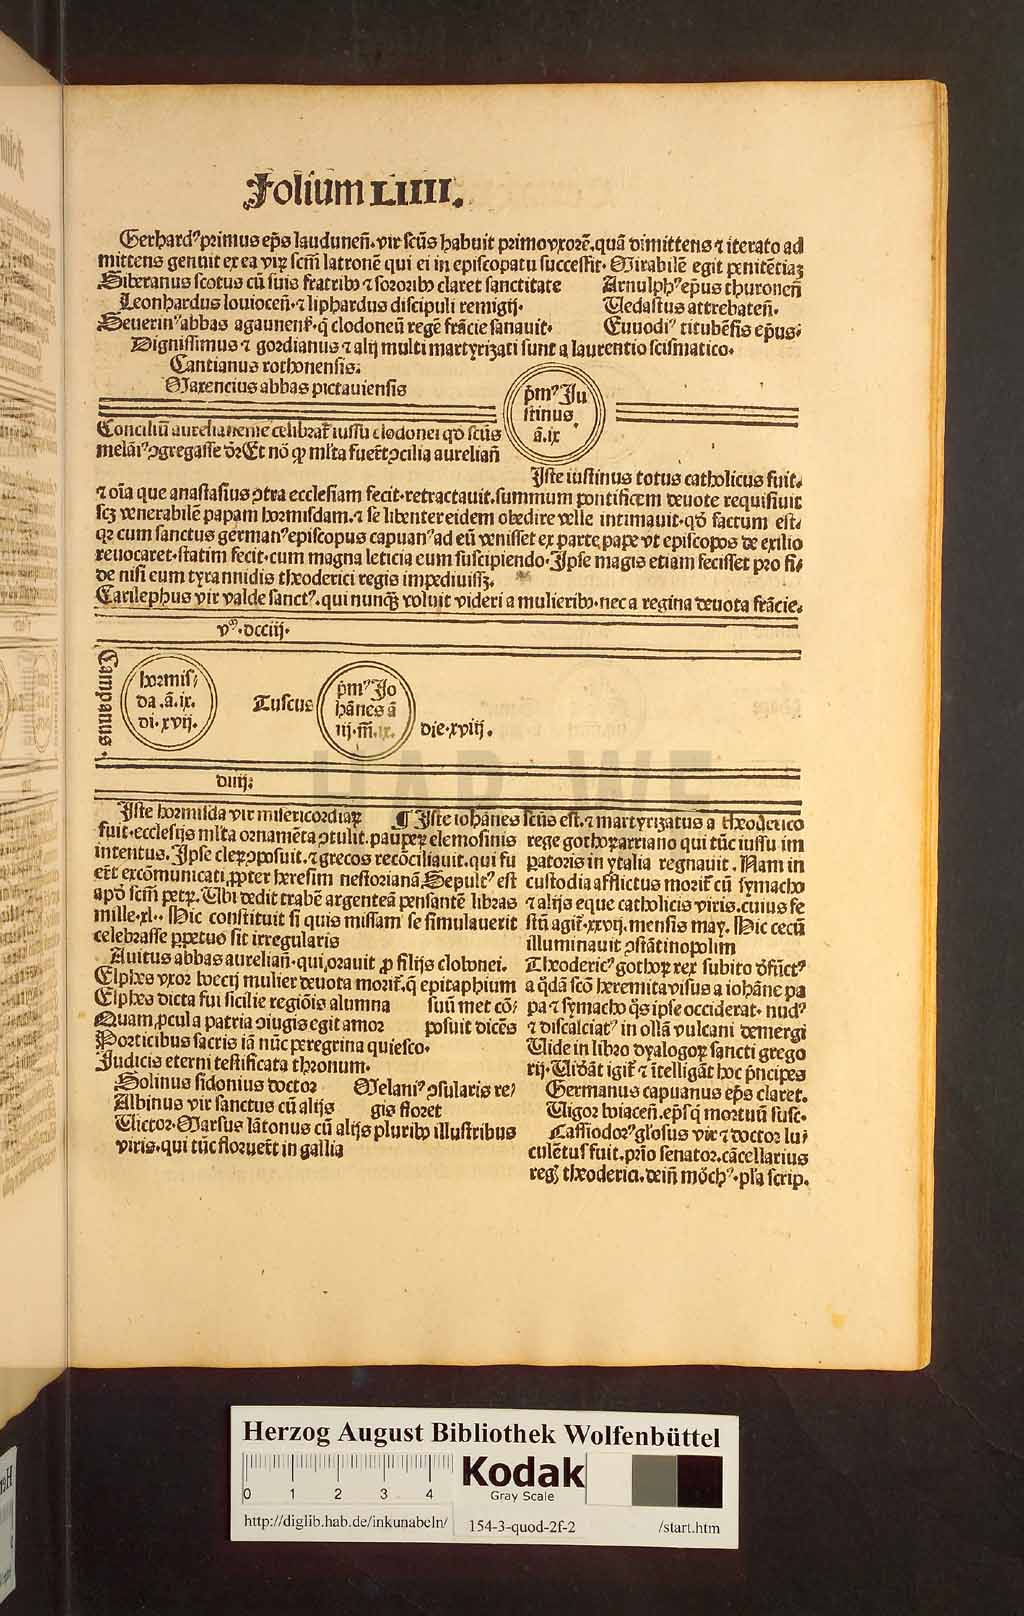 Folium LIIII.
Gerhardꝰ primus ep̄s laudunen̄. vir sct̄s habuit primo vxorē. quā dimittens ⁊ iterato ad
mittens genuit ex ea viꝝ scm̄ latronē qui ei in episcopatu successit. Mirabilē egit penitētiaꝫ
Siberanus scotus cū suis fratribꝰ ⁊ sororibꝰ claret sanctitate Arnulphꝰ ep̄us thuronen̄
Leonhardus louiocen̄. ⁊ liphardus discipuli remigij. Vedastus attrebaten̄.
Seuerinꝰ abbas agaunenẜ. q̇ clodoneū regē frācie sanauit. Euuodiꝰ titubēsis ep̄us:
Dignissimus ⁊ gordianus ⁊ alij multi martyrizati sunt a laurentio scismatico.
Cantianus rothonensis.
Maxencius abbas pictauiensis
p̄mꝰ Iu
stinus
ā. ix
Conciliū aurelianense celibrat̄ iussu clodonei qd̄ sct̄s
melāiꝰ ɔgregasse dr̄ Et nō ꝙ ml̄ta fuer̄t ɔcilia aurelian̄
Iste iustinus totus catholicus fuit.
⁊ oīa que anastasius ɔtra ecclesiam fecit. retractauit. summum pontificem deuote requisiuit
scꝫ venerabilē papam hormisdam. ⁊ se libenter eidem obedire velle intimauit. qd̄ factum est.
qꝛ cum sanctus germanꝰ episcopus capuanꝰ ad eū venisset ex parte pape vt episcopos de exilio
reuocaret. statim fecit. cum magna leticia eum suscipiendo. Ipse magis etiam fecisset pro fi/
de nisi eum tyrannidis theoderici regis impediuissꝫ.
Carilephus vir valde sanctꝰ. qui nunqꝫ voluit videri a mulieribꝰ. nec a regina deuota frācie.
vͫ. dcciij.
Campanus.
hormis/
da. ā. ix.
di. xvij.
Tuscus
p̄mꝰ Jo
hānes ā
iij. m̄. ix.
die. xviij.
diiij:
Iste hormisda vir misericordiaꝝ
fuit. ecclesijs ml̄ta ornamēta ɔtulit. paupeꝝ elemosinis
intentus. Ipse cleꝝ ɔposuit. ⁊ grecos recōciliauit. qui fu
er̄t excōmunicati ꝓpter heresim nestorianā Sepultꝰ est
apd̄ scm̄ petꝝ. Ubi dedit trabē argenteā pensantē libras
mille. xl.. Hic constituit si quis missam se simulauerit
celebrasse ꝑpetuo sit irregularis
Auitus abbas aurelian̄. qui orauit ꝓ filijs clodonei.
Elphes vxor boecij mulier deuota morit̄. q̄ epitaphium
Elphes dicta fui sicilie regiōis alumna suū met cō/
Quam ꝓcul a patria ɔiugis egit amor posuit dicēs
Porticibus sacris iā nūc peregrina quiesco.
Judicis eterni testificata thronum.
Solinus sidonius doctor Melaniꝰ ɔsularis re/
Albinus vir sanctus cū alijs gis floret
Victor. Marsus lātonus cū alijs pluribꝰ illustribus
viris. qui tūc floruer̄t in gallia
¶ Iste iohānes sct̄s est. ⁊ martyrizatus a theoderico
rege gothoꝝ arriano qui tūc iussu im
patoris in ytalia regnauit. Nam in
custodia afflictus morit̄ cū symacho
⁊ alijs eque catholicis viris. cuius fe
stū agit̄. xxvij. mensis may. Hic cecū
illuminauit ɔstātinopolim
Theodericꝰ gothoꝝ rex subito d̄fūctꝰ
a q̇dā scō heremita visus a iohāne pa
pa ⁊ symacho q̇s ipse occiderat. nudꝰ
⁊ discalciatꝰ in ollā vulcani demergi
Vide in libro dyalogoꝝ sancti grego
rij. Vid̄āt igit̄ ⁊ ītelligāt hoc p̄ncipes
Germanus capuanus ep̄s claret.
Vigor boiacen̄. ep̄s q̇ mortuū susc.
Cassiodorꝰ gl̄osus vir ⁊ doctor lu/
culētus fuit. prīo senator. cācellarius
regꝭ theoderici. dein̄ mōchꝰ. pl̄a scrip.
Herzog August Bibliothek Wolfenbüttel
0 1 2 3 4
Kodak
Gray Scale
http://diglib.hab.de/inkunabeln/ 154-3-quod-2f-2 /start.htm